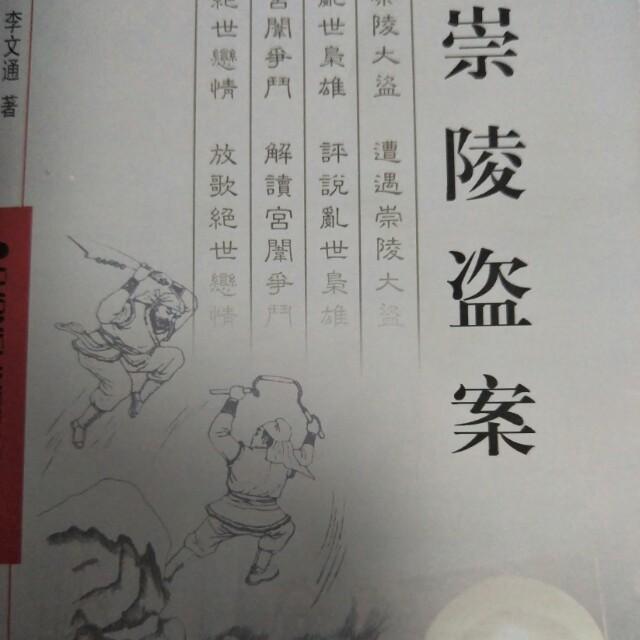 崇陵盗案
崇陵大盜 遭遇崇陵大盜
亂世梟雄 評說亂世梟雄
宮闈爭鬥 解讀宮闈爭鬥
絕世戀情 放歌絕世戀情
李文通 著